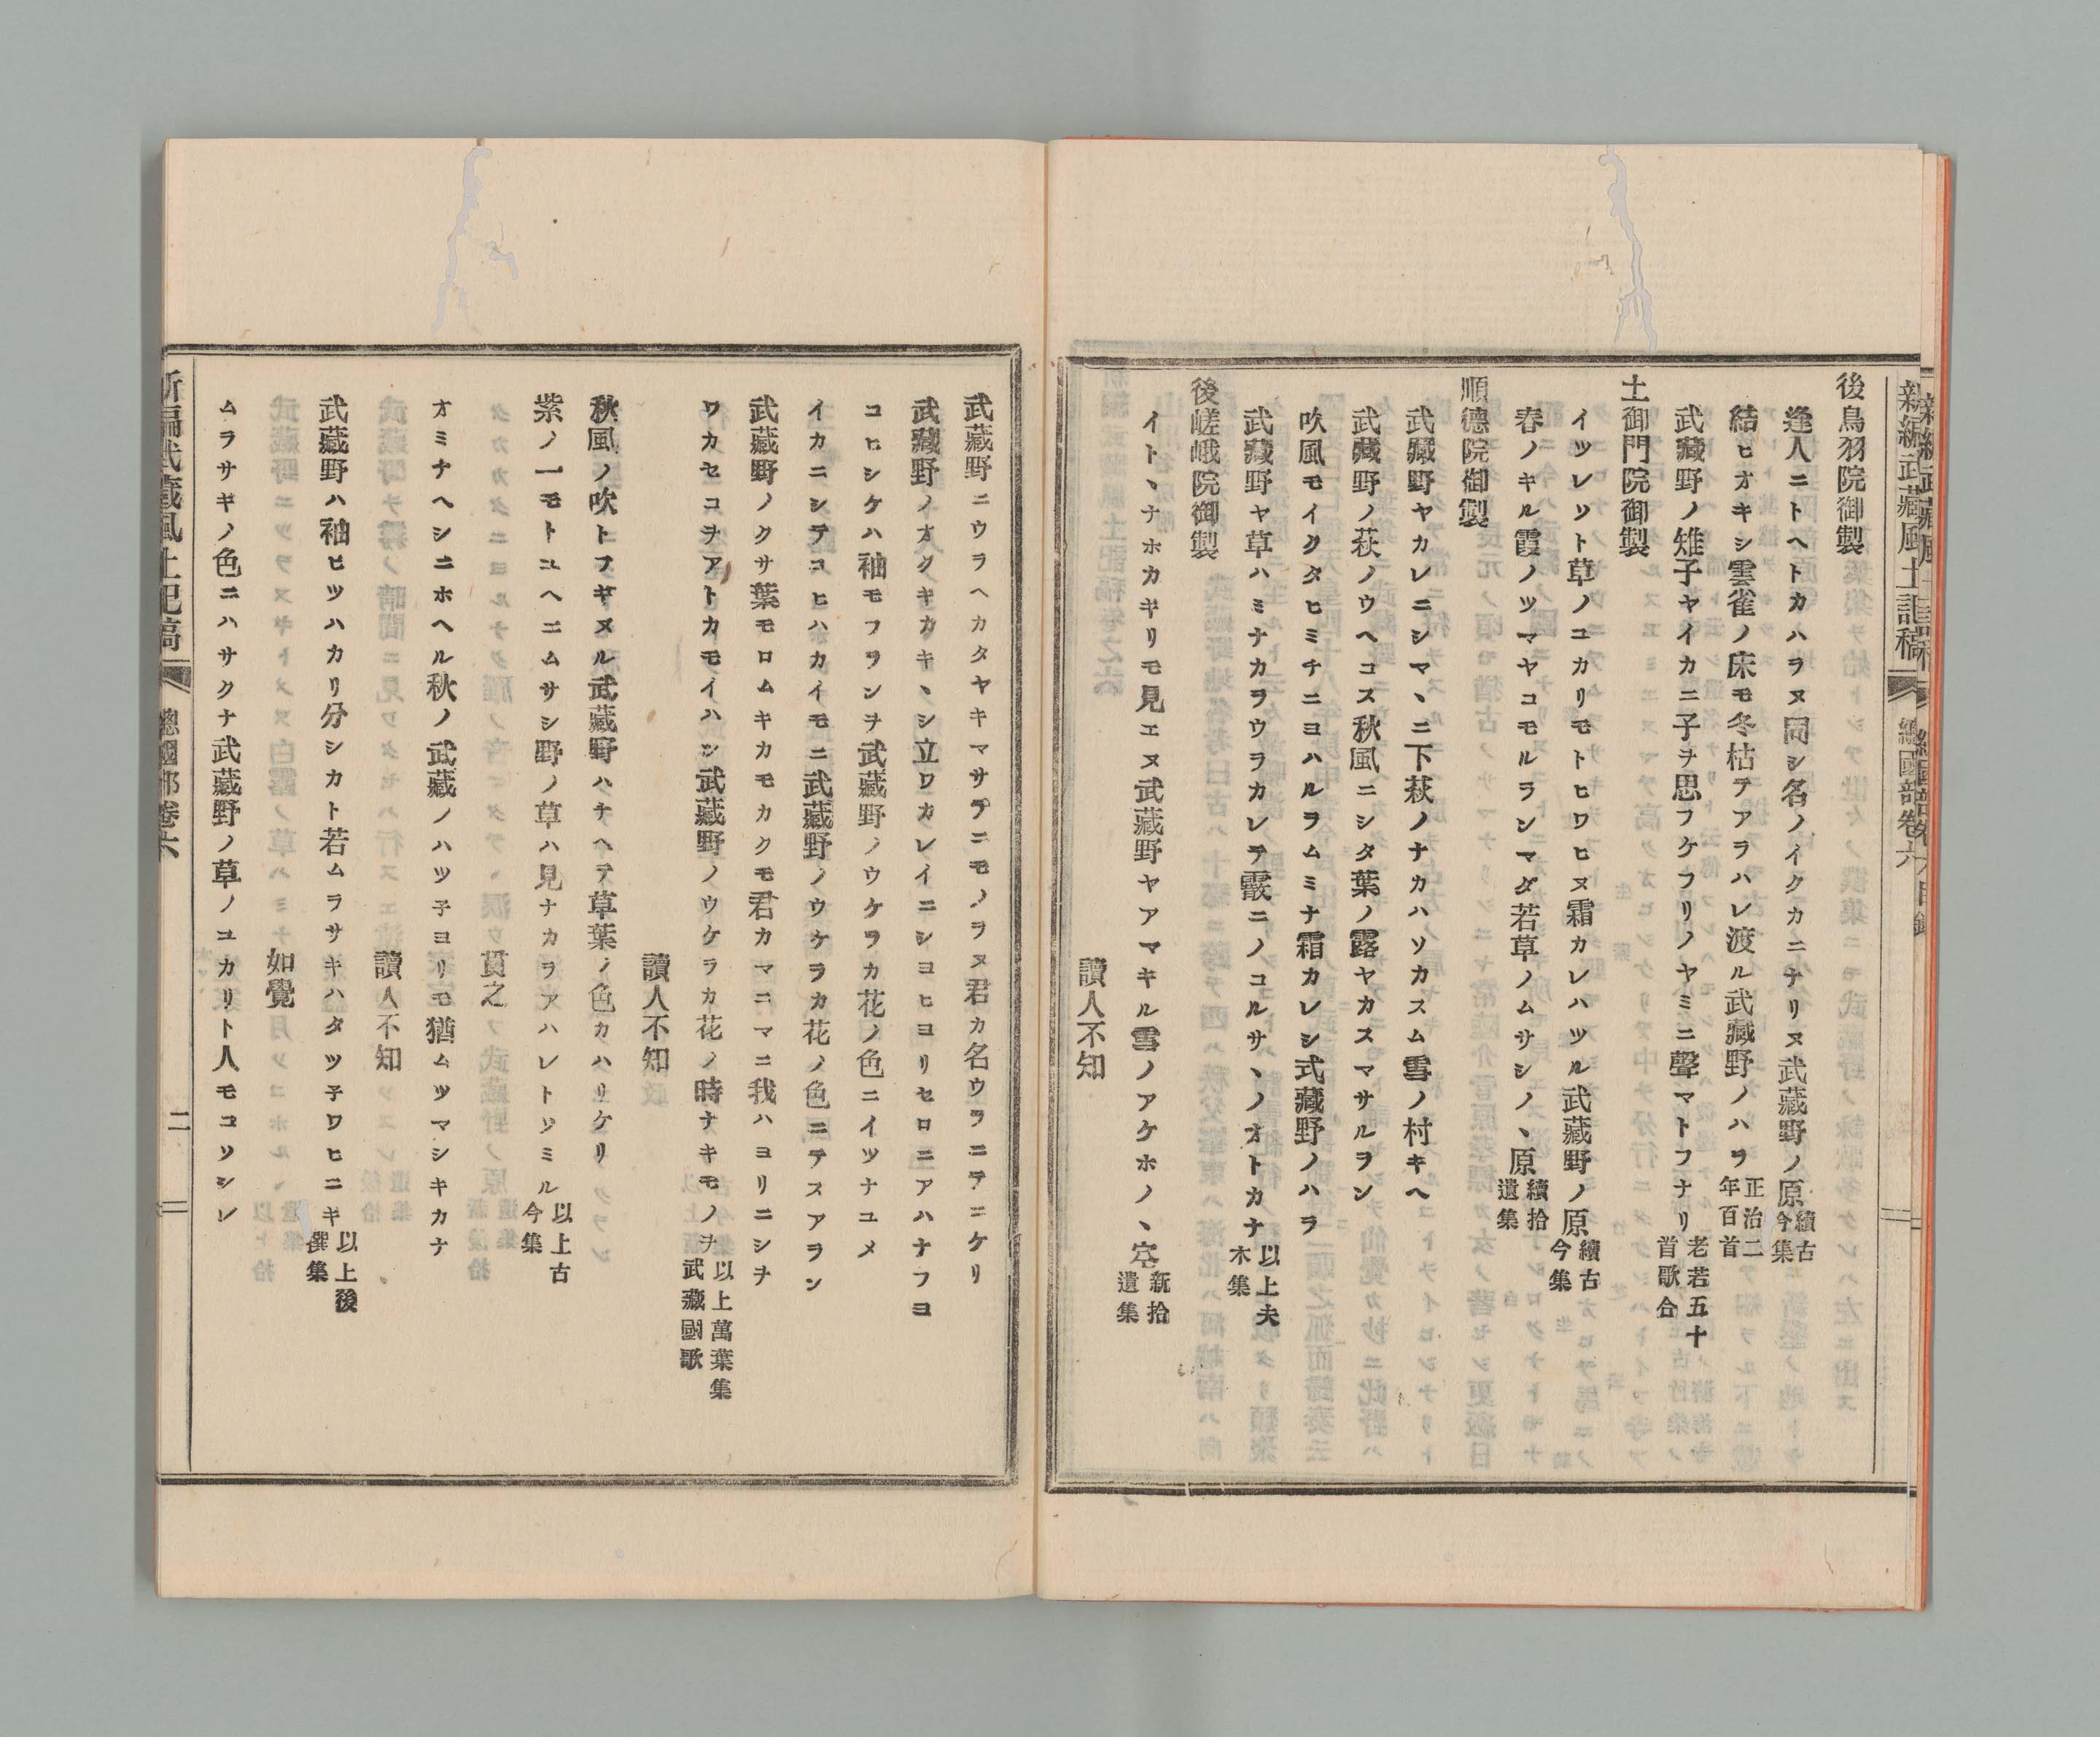 新編武藏風土記稿
總國部卷六
後鳥羽院御製
逢人ニトヘトカハラヌ同シ名ノイクカニナリヌ武藏野ノ原 續古今集
結ヒオキシ雲雀ノ床モ冬枯テアラハレ渡ル武藏野ノハラ 正治二年百首
武藏野ノ雉子ヤイカニ子ヲ思フケフリノヤミニ聲マトフナリ 老若五十首歌合
土御門院御製
イツレソト草ノユカリモトヒワヒヌ霜カレハツル武藏野ノ原 續古今集
春ノキル霞ノツマヤコモルランマダ若草ノムサシノヽ原 續拾遺集
順德院御製
武藏野ヤカレニシマヽニ下萩ノナカハソカスム雪ノ村キヘ
武藏野ノ萩ノウヘコス秋風ニシタ葉ノ露ヤカスマサルラン
吹風モイクタヒミチニヨハルラムミナ霜カレシ式藏野ノハラ
武藏野ヤ草ハミナカラウラカレテ霰ニノコルサヽノオトカナ 以上夫木集
後嵯峨院御製
イトヽナホカギリモ見エヌ武藏野ヤアマキル雪ノアケホノヽ空 新拾遺集
讀人不知
武藏野ニウラヘカタヤキマサテニモノラヌ君カ名ウラニテニケリ
武藏野ノオクキカキヽシ立ワカレイニシヨヒヨリセロニアハナフヨ
コヒシケハ袖モフランヲ武藏野ノウケラカ花ノ色ニイツナユメ
イカニシテコヒハカイモニ武藏野ノウケラカ花ノ色ニテスアラン
武藏野ノクサ葉モロムキカモカクモ君カマニマニ我ハヨリニシヲ
ワカセコヲアトカモイハン武藏野ノウケラカ花ノ時ナキモノヲ 以上萬葉集武藏國歌
讀人不知
秋風ノ吹トフキヌル武藏野ハナヘテ草葉ノ色カハリケリ
紫ノ一モトユヘニムサシ野ノ草ハ見ナカラアハレトソミル 以上古今集
貫之
オミナヘシニホヘル秋ノ武藏ノハツ子ヨリモ猶ムツマシキカナ
讀人不知
武藏野ハ袖ヒツハカリ分シカト若ムラサキハタツ子ワヒニキ 以上後撰集
如覺
ムラサギノ色ニハサクナ武藏野ノ草ノユカリト人モコソシレ
新編武藏風土記稿
總國部卷六
二